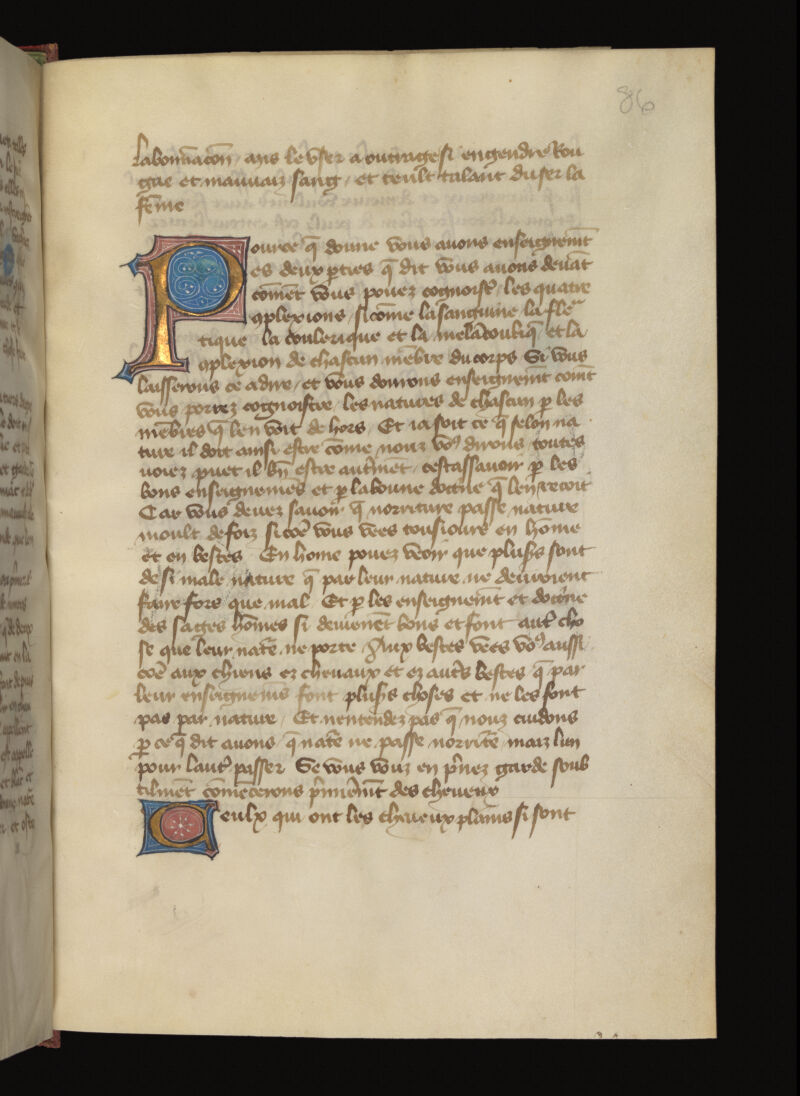 86
labominacōn / ains le user a outrage si engendre rou
gne et mauvaiz sang / et teult talant duser la
feme
Pource q̄ donne vous avons enseignemēt
es deux pties q̄ dit vous avons devāt
cōmēt vous povez cognoistre / les quatre
9plexions / si cōme la sanguine la fleu
tique la coulerique et la melācoliq̄ et la
9plexion de chascun mēbre du corps Si vous
laisserons ce a dire / et vous donrons enseignemēt comēt
vous porrez cognoistre / les natures de chascun p les
mēbres q̄ len voit de hors / Et ia soit ce q̄ selon na
ture il doit ainsi estre cōme nouz vo9 dirons toutes
voiez puet il bn̄ estre autrmēt / cestassavoir p les
bons enseignemēs et p la bonne doctne q̄ len recoit
Car vous devez savoir q̄ norriture passe nature
moult de foiz si cōe vous vees tousiours en hōme
et en bestes / En home povez veoir que plusrs sont
de si male nature q̄ par leur nature ne devroient
faire fors que mal / Et p les enseignemēt et doctne
des sages hōmes si deviēnēt bons et font autr cho
se que leur natre ne porte / Aux bestes vees vo9 aussi
cōe aux chiens ez chevaux et ez autrs bestes q̄ par
leur enseignemēs font plusrs choses et ne les font
pas par nature / Et nentendez pas q̄ nouz cuidons
p ce q̄ dit avons q̄ natre ne passe norritre maiz lun
pour lautr passer Se vous vouz en prnez garde soub
tilmēt cōmēcerons prmiermēt des cheveux
Ceulx qui ont les cheveux plains si sont